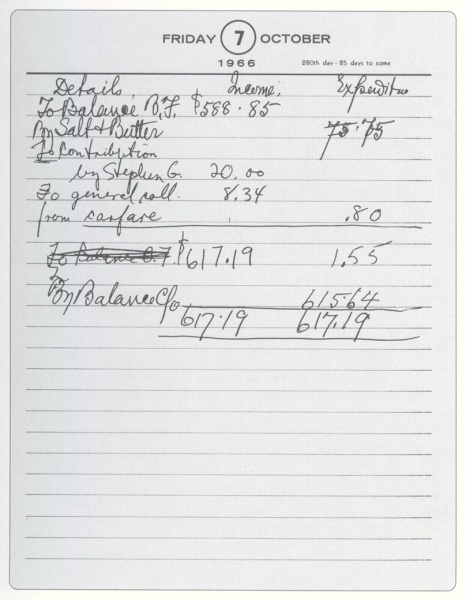 FRIDAY 7 OCTOBER
1966 280th day - 85 days to come
Details Income Expenditure
To Balance B.F. $588.85
By Salt & Butter .75
To Contribution
by Stephen G. 20.00
To general coll. 8.34
from carfare .80
To Balance B.F. $617.19 1.55
By Balance C/o 615.64
617.19 617.19